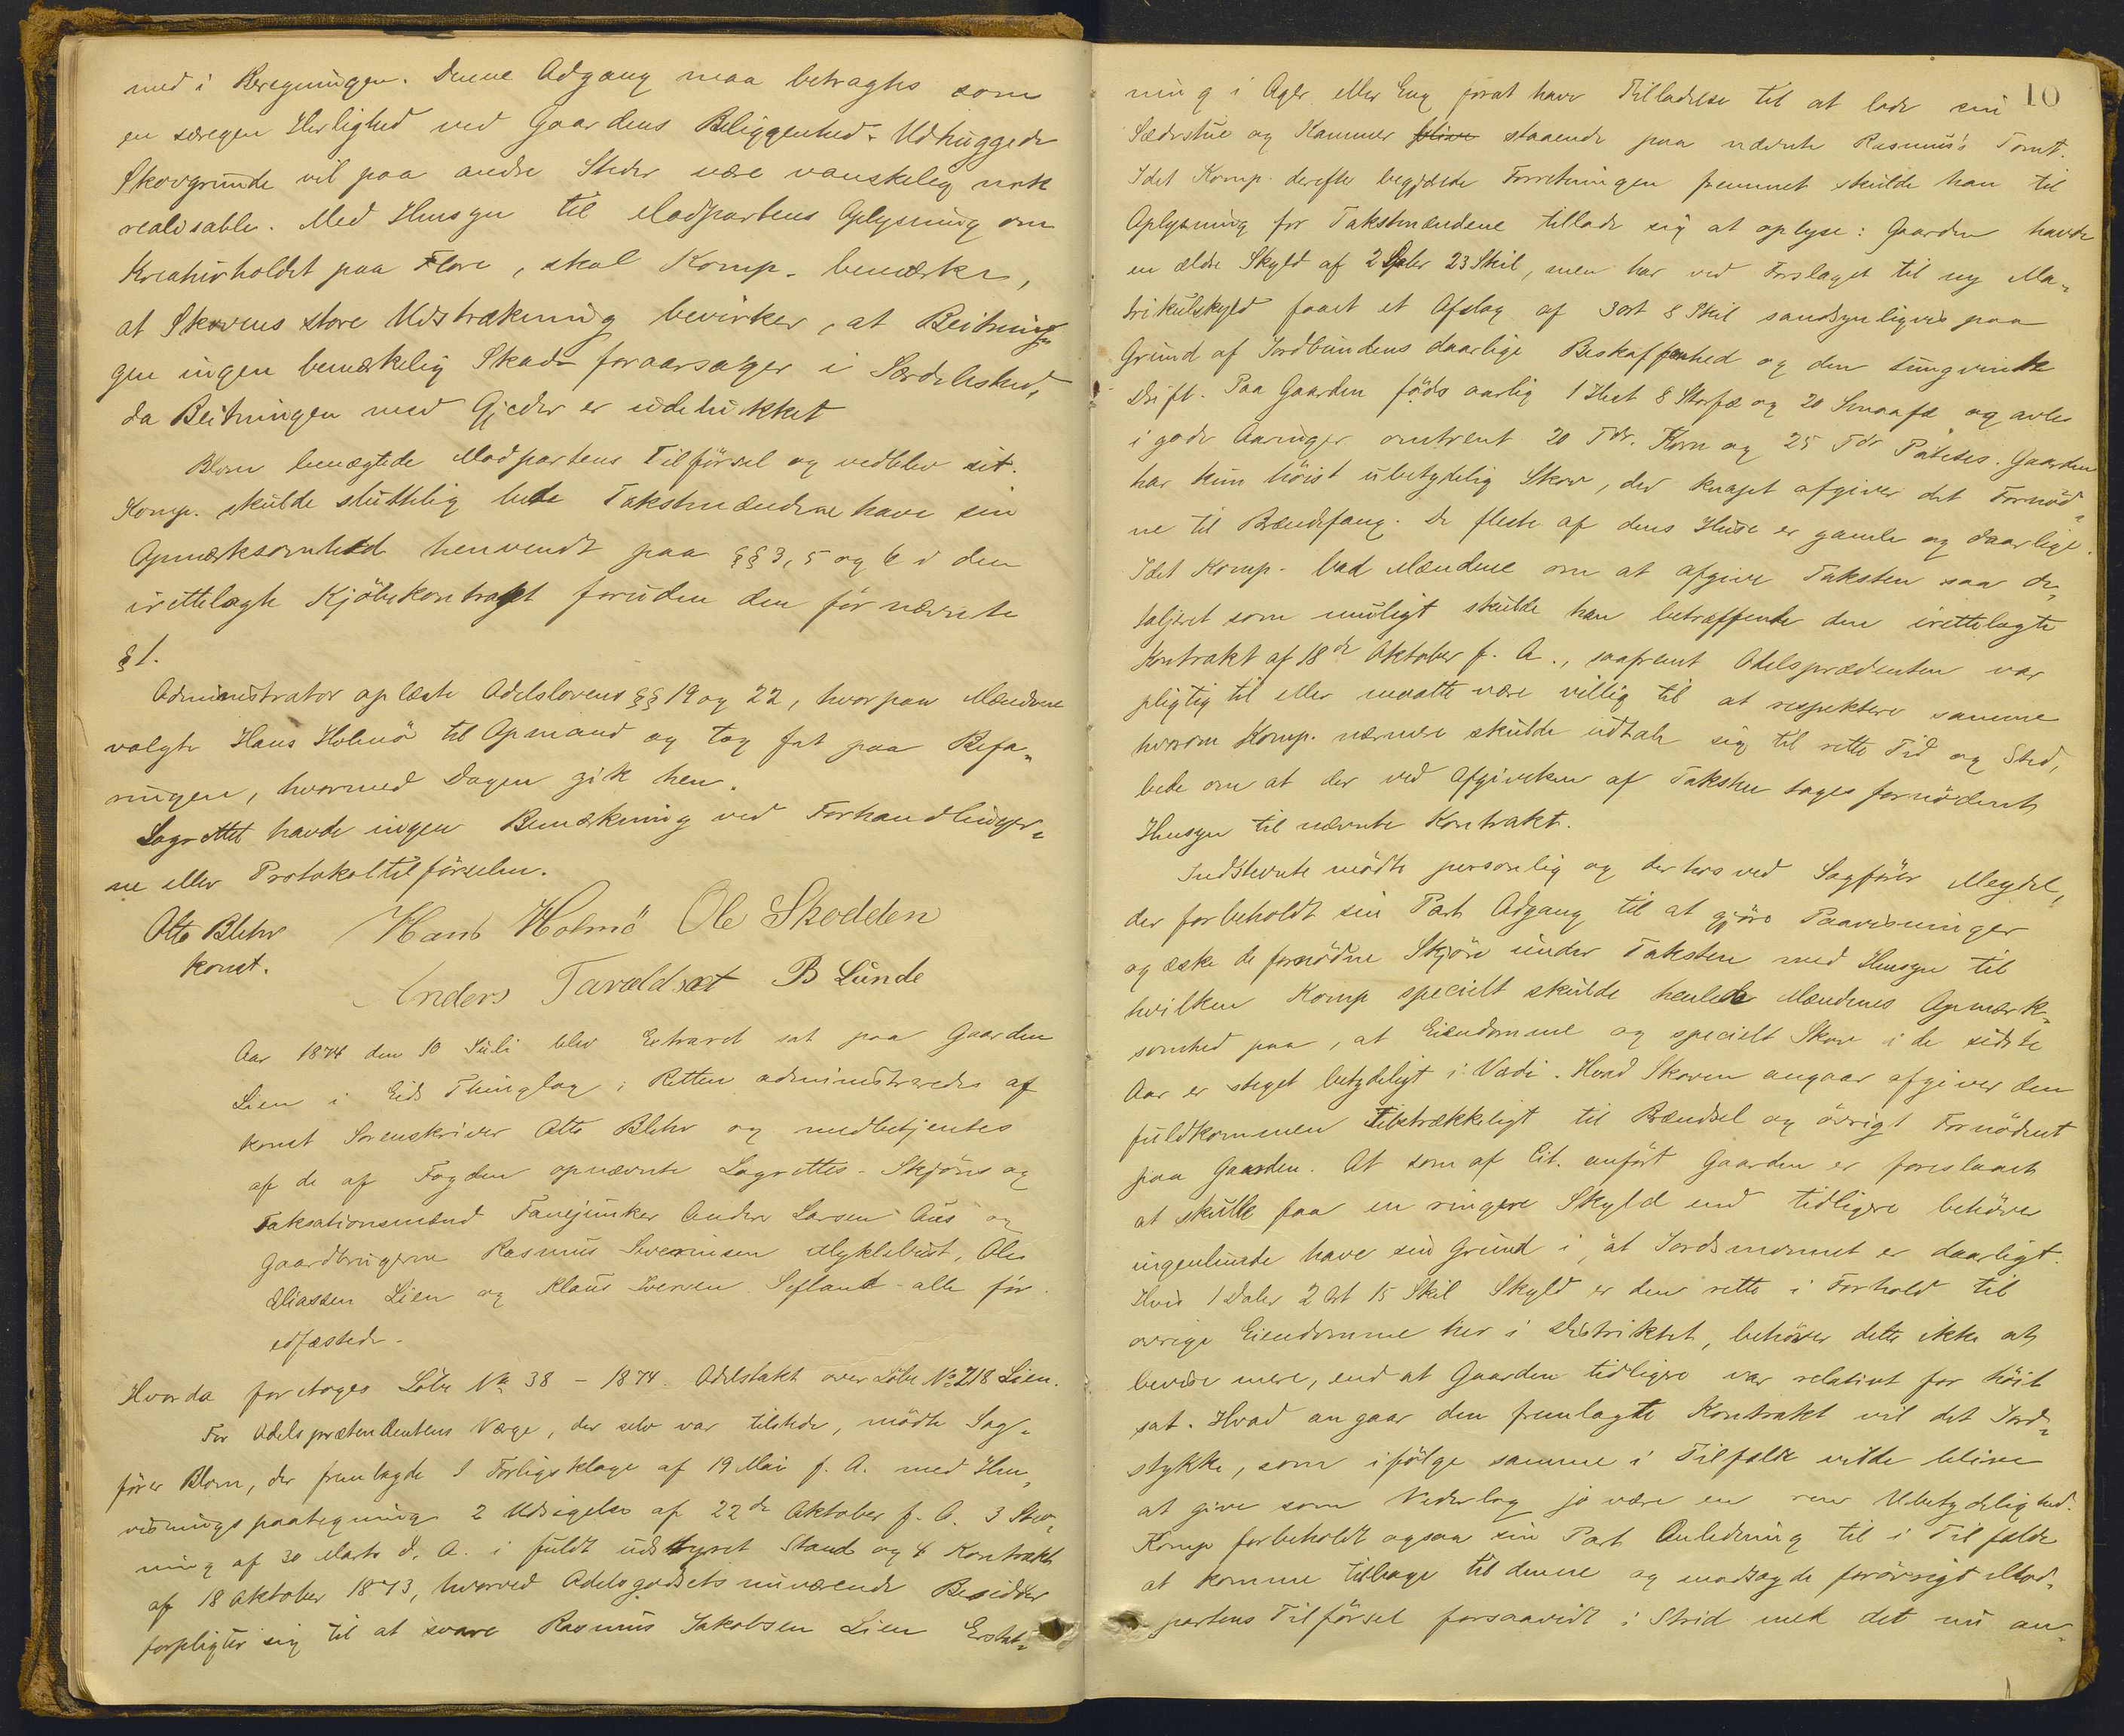 med i Beregningen. Denne Adgang maa betragtes som
en særegen Herlighed ved Gaardens Beliggenhed. Udhuggede
Skovgrunde vil paa andre Steder være vanskelig nok
realisable. Med Hensyn til Modpartens Oplysning om
Kreaturholdet paa Flore, skal Komp. bemærke,
at Skovens store Udstrækning bevirker, at Beitnin¬
gen ingen bemærkelig Skade foraarsager i Særdeleshed,
da Beitningen med Gjeder er udelukket
Blom benægtede Modpartens Tilförsel og vedblev sit.
Komp. skulde sluttelig bede Takstmændene have sin
Opmærksomhed henvendt paa §§ 3, 5 og 6 i den
irettelagte Kjöbekontrakt foruden den för nævnte
§ 1.
Administrator oplæste Odelslovens §§ 19 og 22, hvorpaa Mændene
valgte Hans Holmö til Opmand og tog fat paa Befa¬
ringen, hvormed Dagen gik hen.
Lagrettet havde ingen Bemærkning ved Forhandlinger¬
ne eller Protokoltilförselen.
Otto Blehr Hans Holmö Ole Skodden
konst.
Anders Taraldset B Lunde
Aar 1874 den 10 Juli blev Extraret sat paa Gaarden
Lien i Eids Thinglag; Retten administreredes af
konst Sorenskriver Otto Blehr og medbetjentes
af de af Fogden opnævnte Lagrettes- Skjöns og
Taksationsmænd Fanejunker Anders Larsen Aus og
Gaardbrugerne Rasmus Severinsen Myklebust, Ole
Eliassen Lien og Klaus Iversen Sefland - alle för
edfæstede.
Hvorda foretoges Löbe No 38 - 1874. Odelstakt over Löbe No 218 Lien.
For Odelsprætendentens Værge, der selv var tilstede, mödte Sag¬
förer Blom, der fremlagde 1 Forligsklage af 19 Mai f. A. med Hen¬
visningspaategning 2 Udsigelse af 22de Oktober f. A. 3 Stev¬
ning af 30 Marts d. A. i fuldt udstyret Stand og 4 Kontrakt
af 18 Oktober 1873, hvorved Odelsgodsets nuværende Besidder
forpligter sig til at svare Rasmus Jakobsen Lien Erstat¬
10
ning i Ager eller Eng forat have Tilladelse til at lade sin
Sæderstue og Kammer blive staaende paa nævnte Rasmus's Tomt.
Idet Komp. derefter begjærede Forretningen fremmet skulde han til
Oplysning for Takstmændene tillade sig at oplyse: Gaarden havde
en ældre Skyld af 2 Daler 23 Skil, men har ved Forslaget til ny Ma¬
trikulskyld faaet et Afslag af 3 ort 8 Skil sandsynligvis paa
Grund af Jordbundens daarlige Beskaffenhed og den tungvindte
Drift. Paa Gaarden födes aarlig 1 Hest 8 Storfæ og 20 Smaafæ og avles
i gode Aaringer omtrent 20 Tdr. Korn og 25 Tdr Potetes. Gaarden
har kun höist ubetydelig Skov, der knapt afgiver det Fornöd¬
ne til Brændefang. De fleste af dens Huse er gamle og daarlige.
Idet Komp. bad Mændene om at afgive Taksten saa de¬
taljeret som muligt skulde han betræffende den irettelagte
Kontrakt af 18de Oktober f. A., saafremt Odelsprædenten var
pligtig til eller maatte være villig til at respektere samme
hvorom Komp. nærmere skulde udtale sig til rette Tid og Sted,
bede om at der ved Afgivelsen af Taksten toges fornödent
Hensyn til nævnte Kontrakt.
Indstevnte mödte personlig og derhos ved Sagförer Meydel,
der forbeholdt sin Part Adgang til at gjöre Paavisninger
og æske de fornödne Skjön under Taksten med Hensyn til
hvilken Komp specielt skulde henlede Mændenes Opmærk¬
somhed paa, at Eiendomme og specielt Skov i de sidste
Aar er steget betydeligt i Værdi. Hvad Skoven angaar afgiver den
fuldkommen Tilstrækkeligt til Brændsel og övrigt Fornödent
paa Gaarden. At som af Cit. anfört Gaarden er foreslaaet
at skulle faa en ringere Skyld end tidligere behöver
ingenlunde have sin Grund i, at Jordsmonnet er daarligt.
Hvis 1 Daler 2 Ort 15 Skil Skyld er den rette i Forhold til
övrige Eiendomme her i Distriktet, behöver dette ikke at
bevise mere, end at Gaarden tidligere var relativt for höit
sat. Hvad angaar den fremlagte Kontrakt vil det Jord¬
stykke, som ifölge samme i Tilfælde vilde blive
at give som Vederlag jo være en ren Ubetydelighed.
Komp forbeholdt ogsaa sin Part Anledning til i Tilfælde
at komme tilbage til denne og modsagde forövrigt Mod¬
partens Tilförsel forsaavidt i Strid med det nu an¬